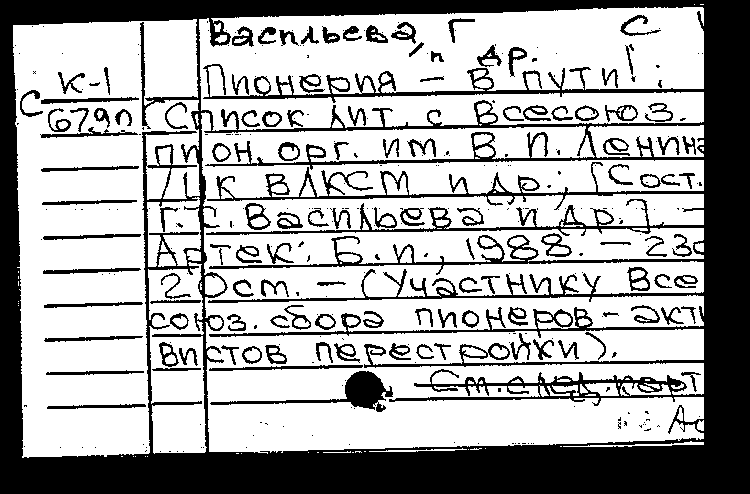 Васильева, Г С
и др.
К-1 Пионерия – в пути! :
С 679л [Список лит. с Всесоюз.
пион. орг. им. В. И. Ленина
/ЦК ВЛКСМ и др.; [Сост.
Г.С. Васильева и др.]. –
Артек: Б.и., 1988. – 23с
20см. – (Участнику Все
союз. сбора пионеров-акти
вистов перестройки).
См. след. карт